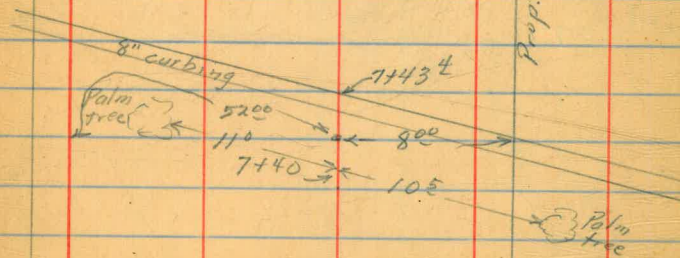 8" curbing
7+43⁴
Prop.
Palm
tree
52⁰⁰
11⁰
8⁰⁰
7+40
10⁵
Palm
tree